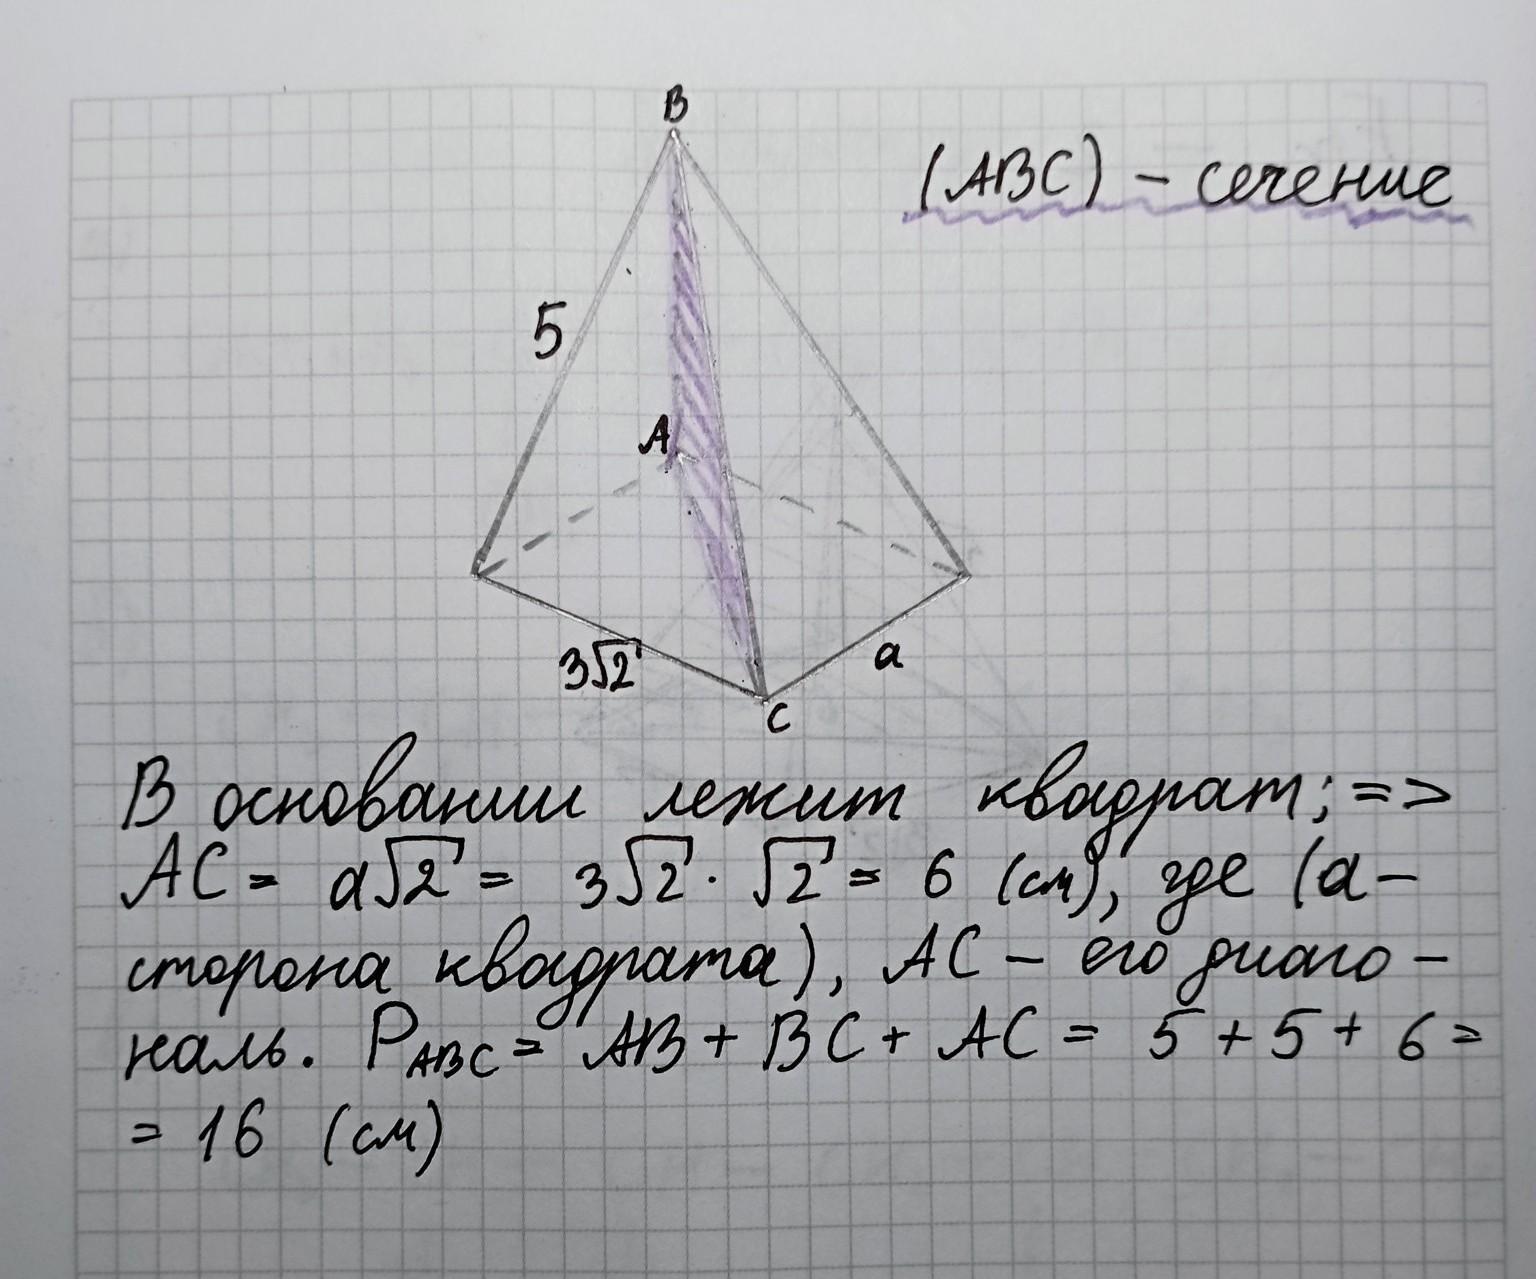 B
(ABC) - сечение
5
A
3√2
a
C
В основании лежит квадрат; =>
AC = a√2 = 3√2 · √2 = 6 (см), где (a -
сторона квадрата), AC - его диаго -
наль. P_ABC = AB + BC + AC = 5 + 5 + 6 =
= 16 (см)